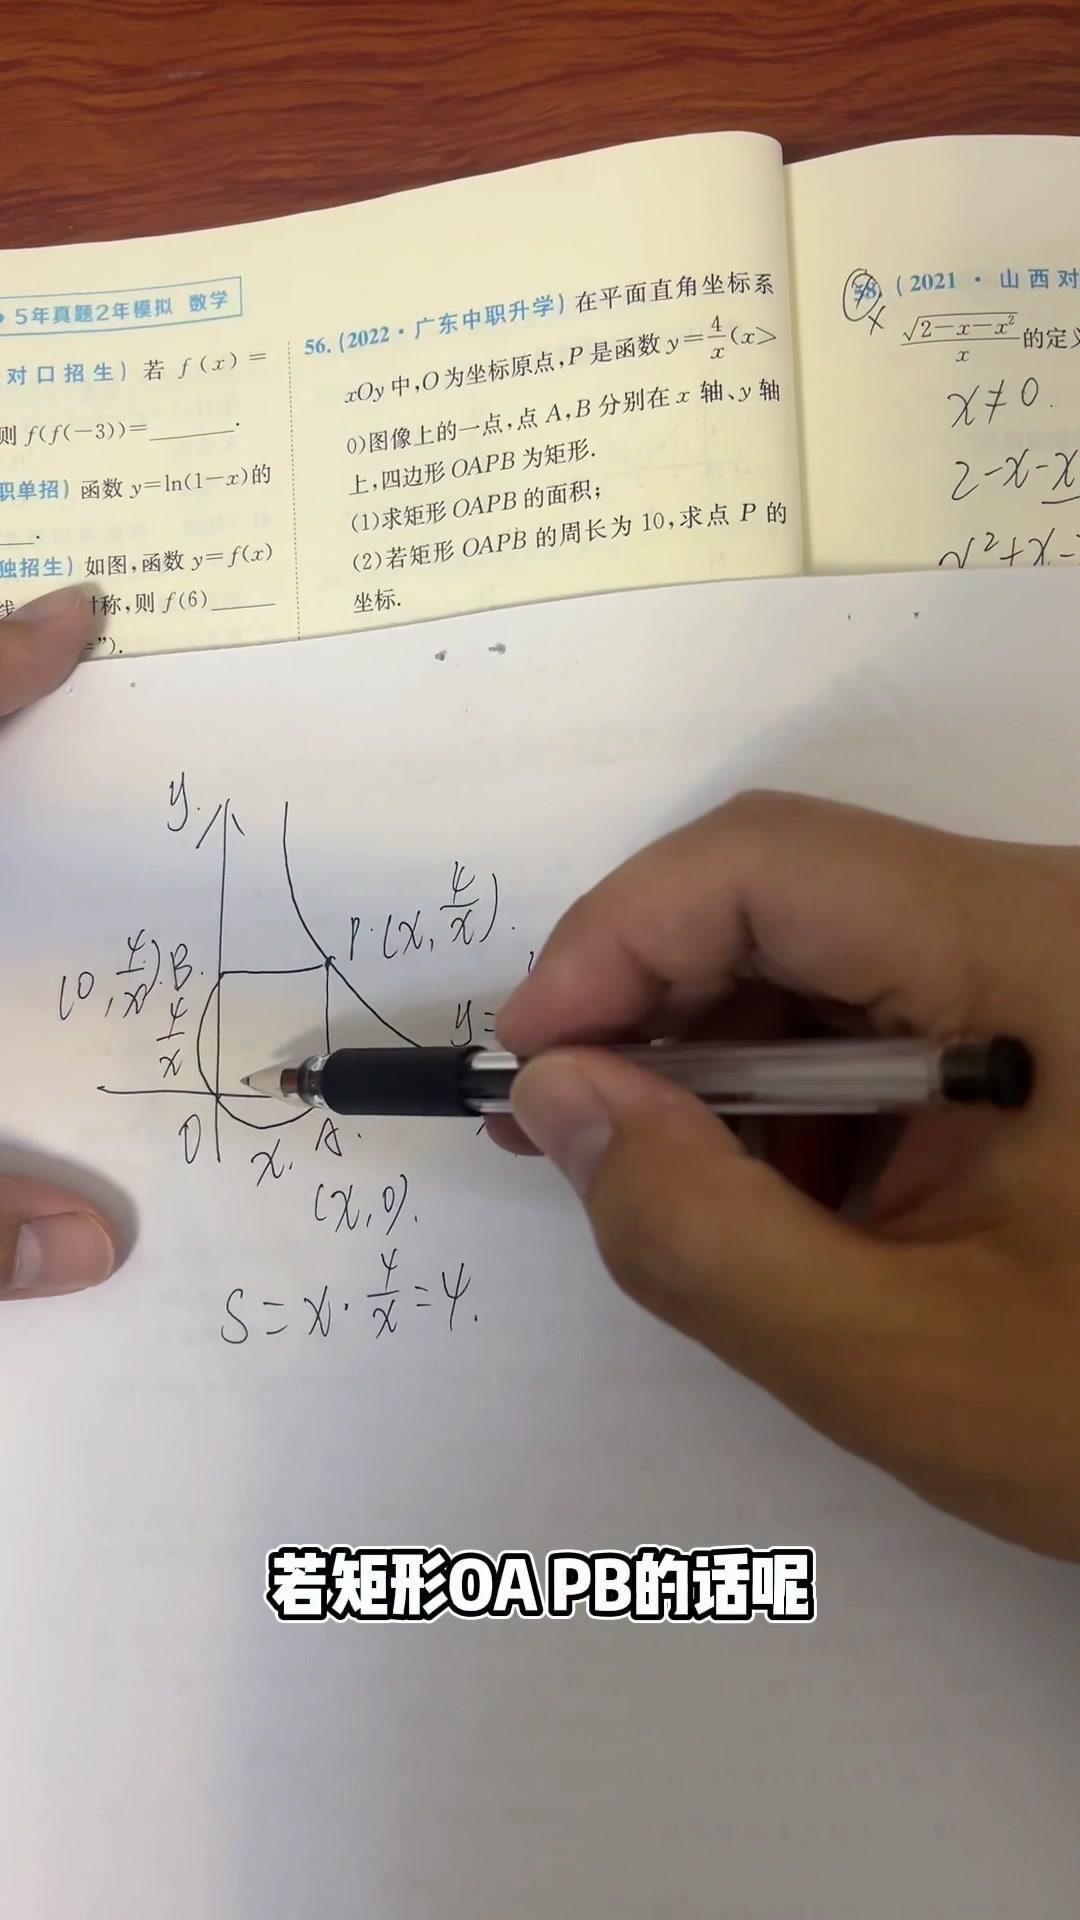 5年真题2年模拟 数学
对口招生）若 f(x)=
则 f(f(−3))=______.
职单招）函数 y=ln(1−x)的
___.
独招生）如图,函数 y=f(x)
称,则 f(6)____
=”).
56.(2022·广东中职升学)在平面直角坐标系
xOy 中,O 为坐标原点,P 是函数 y=4/x(x>
0)图像上的一点,点 A,B 分别在 x 轴、y 轴
上,四边形 OAPB 为矩形.
(1)求矩形 OAPB 的面积;
(2)若矩形 OAPB 的周长为 10,求点 P 的
坐标.
58.(2021·山西对
√(2−x−x²)/x 的定义
x≠0.
2-x-x
x²+x-
y.
P.(x, 4/x).
(0, 4/x).B.
4/x
y=
O
x.
A.
(x,0).
S=x·4/x=4.
若矩形OA PB的话呢